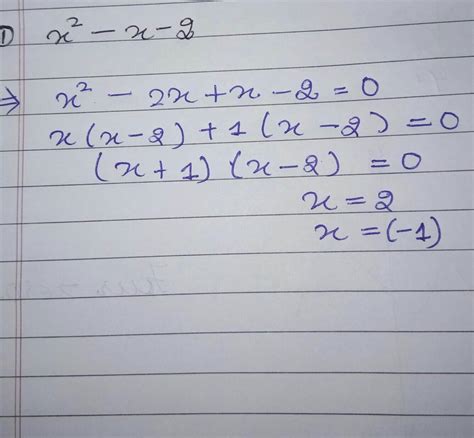 ① x² - x - 2
⇒ x² - 2x + x - 2 = 0
x(x-2) + 1(x-2) = 0
(x+1) (x-2) = 0
x = 2
x = (-1)